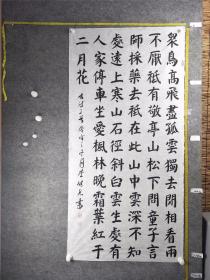 眾鳥高飛盡孤雲獨去閑相看兩
不厭祗有敬亭山松下問童子言
師採藥去祗在此山中雲深不知
處遠上寒山石徑斜白雲生處有
人家停車坐愛楓林晚霜葉紅于
二月花
古詩三首